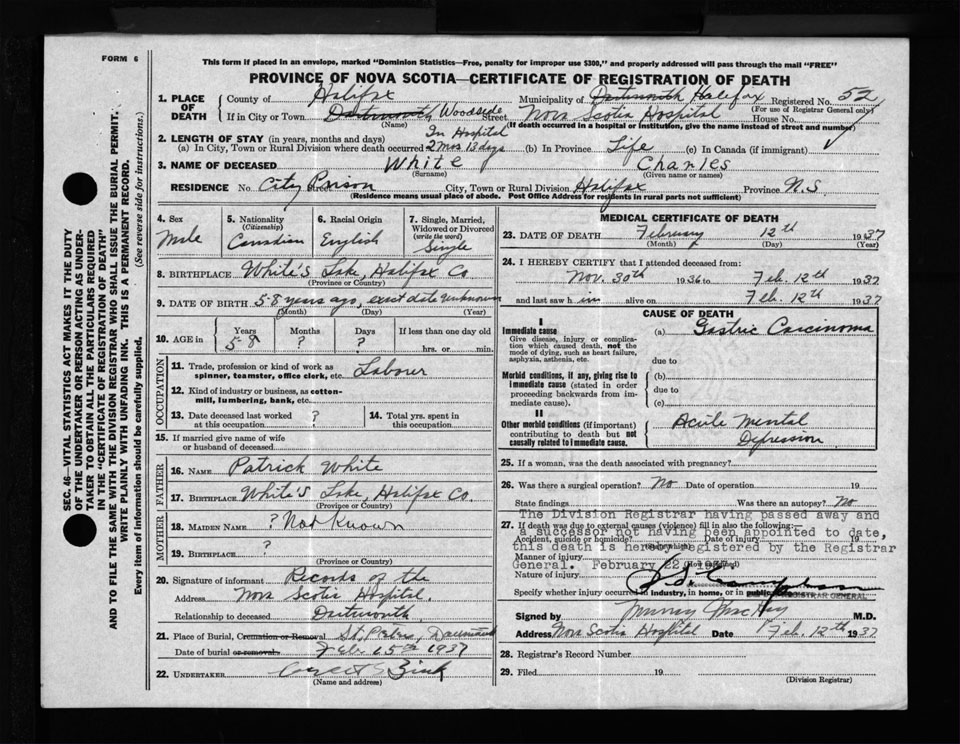 FORM 6
This form if placed in an envelope, marked "Dominion Statistics—Free, penalty for improper use $300," and properly addressed will pass through the mail "FREE"
PROVINCE OF NOVA SCOTIA—CERTIFICATE OF REGISTRATION OF DEATH
1. PLACE OF DEATH
County of Halifax Municipality of Dartmouth Halifax Registered No. 52
(For use of Registrar General only)
If in City or Town Dartmouth Woodside Street Nova Scotia Hospital House No.
(Name) (If death occurred in a hospital or institution, give the name instead of street and number)
2. LENGTH OF STAY (in years, months and days) In Hospital
(a) In City, Town or Rural Division where death occurred 2 mos 13 days (b) In Province Life (c) In Canada (if immigrant)
3. NAME OF DECEASED White Charles
(Surname) (Given name or names)
RESIDENCE No. City Prison Street City, Town or Rural Division Halifax Province N.S
(Residence means usual place of abode. Post Office Address for residents in rural parts not sufficient)
4. Sex Male
5. Nationality (Citizenship) Canadian
6. Racial Origin English
7. Single, Married, Widowed or Divorced (write the word) Single
8. BIRTHPLACE White's Lake, Halifax Co
(Province or Country)
9. DATE OF BIRTH 58 years ago, exact date unknown
(Month) (Day) (Year)
10. AGE in Years 58 Months ? Days ? If less than one day old hrs. or min.
OCCUPATION
11. Trade, profession or kind of work as spinner, teamster, office clerk, etc. Labourer
12. Kind of industry or business, as cotton-mill, lumbering, bank, etc.
13. Date deceased last worked at this occupation ?
14. Total yrs. spent in this occupation
15. If married give name of wife or husband of deceased
FATHER
16. NAME Patrick White
17. BIRTHPLACE White's Lake, Halifax Co.
(Province or Country)
MOTHER
18. MAIDEN NAME ? Not Known
19. BIRTHPLACE ?
(Province or Country)
20. Signature of informant Records of the
Address Nova Scotia Hospital,
Relationship to deceased Dartmouth
21. Place of Burial, Cremation or Removal St. Peters, Dartmouth
Date of burial or removal Feb. 15th 1937
22. UNDERTAKER Zink
(Name and address)
MEDICAL CERTIFICATE OF DEATH
23. DATE OF DEATH February 12th 1937
(Month) (Day) (Year)
24. I HEREBY CERTIFY that I attended deceased from:
Nov. 30th 1936 to Feb. 12th 1937
and last saw him alive on Feb. 12th 1937
CAUSE OF DEATH
I
Immediate cause (a) Gastric Carcinoma
Give disease, injury or complication which caused death, not the mode of dying, such as heart failure, asphyxia, asthenia, etc.
due to
Morbid conditions, if any, giving rise to immediate cause (stated in order proceeding backwards from immediate cause).
(b)
due to
(c)
II
Other morbid conditions (if important) contributing to death but not causally related to immediate cause.
Acute Mental
Depression
25. If a woman, was the death associated with pregnancy?
26. Was there a surgical operation? No Date of operation 19
State findings Was there an autopsy? No
The Division Registrar having passed away and
27. If death was due to external causes (violence) fill in also the following:—
a successor not having been appointed to date,
Accident, suicide or homicide? Date of injury 19
this death is hereby registered by the Registrar
Manner of injury
General. February 22
Nature of injury
Specify whether injury occurred in industry, in home, or in public
REGISTRAR GENERAL
Signed by Murray MacKay M.D.
Address Nova Scotia Hospital Date Feb. 12th 1937
28. Registrar's Record Number
29. Filed 19
(Division Registrar)
SEC. 46—VITAL STATISTICS ACT MAKES IT THE DUTY
OF THE UNDERTAKER OR PERSON ACTING AS UNDER-
TAKER TO OBTAIN ALL THE PARTICULARS REQUIRED
IN THE "CERTIFICATE OF REGISTRATION OF DEATH"
AND TO FILE THE SAME WITH THE DIVISION REGISTRAR WHO SHALL ISSUE THE BURIAL PERMIT.
WRITE PLAINLY WITH UNFADING INK. THIS IS A PERMANENT RECORD.
Every item of information should be carefully supplied. (See reverse side for instructions.)